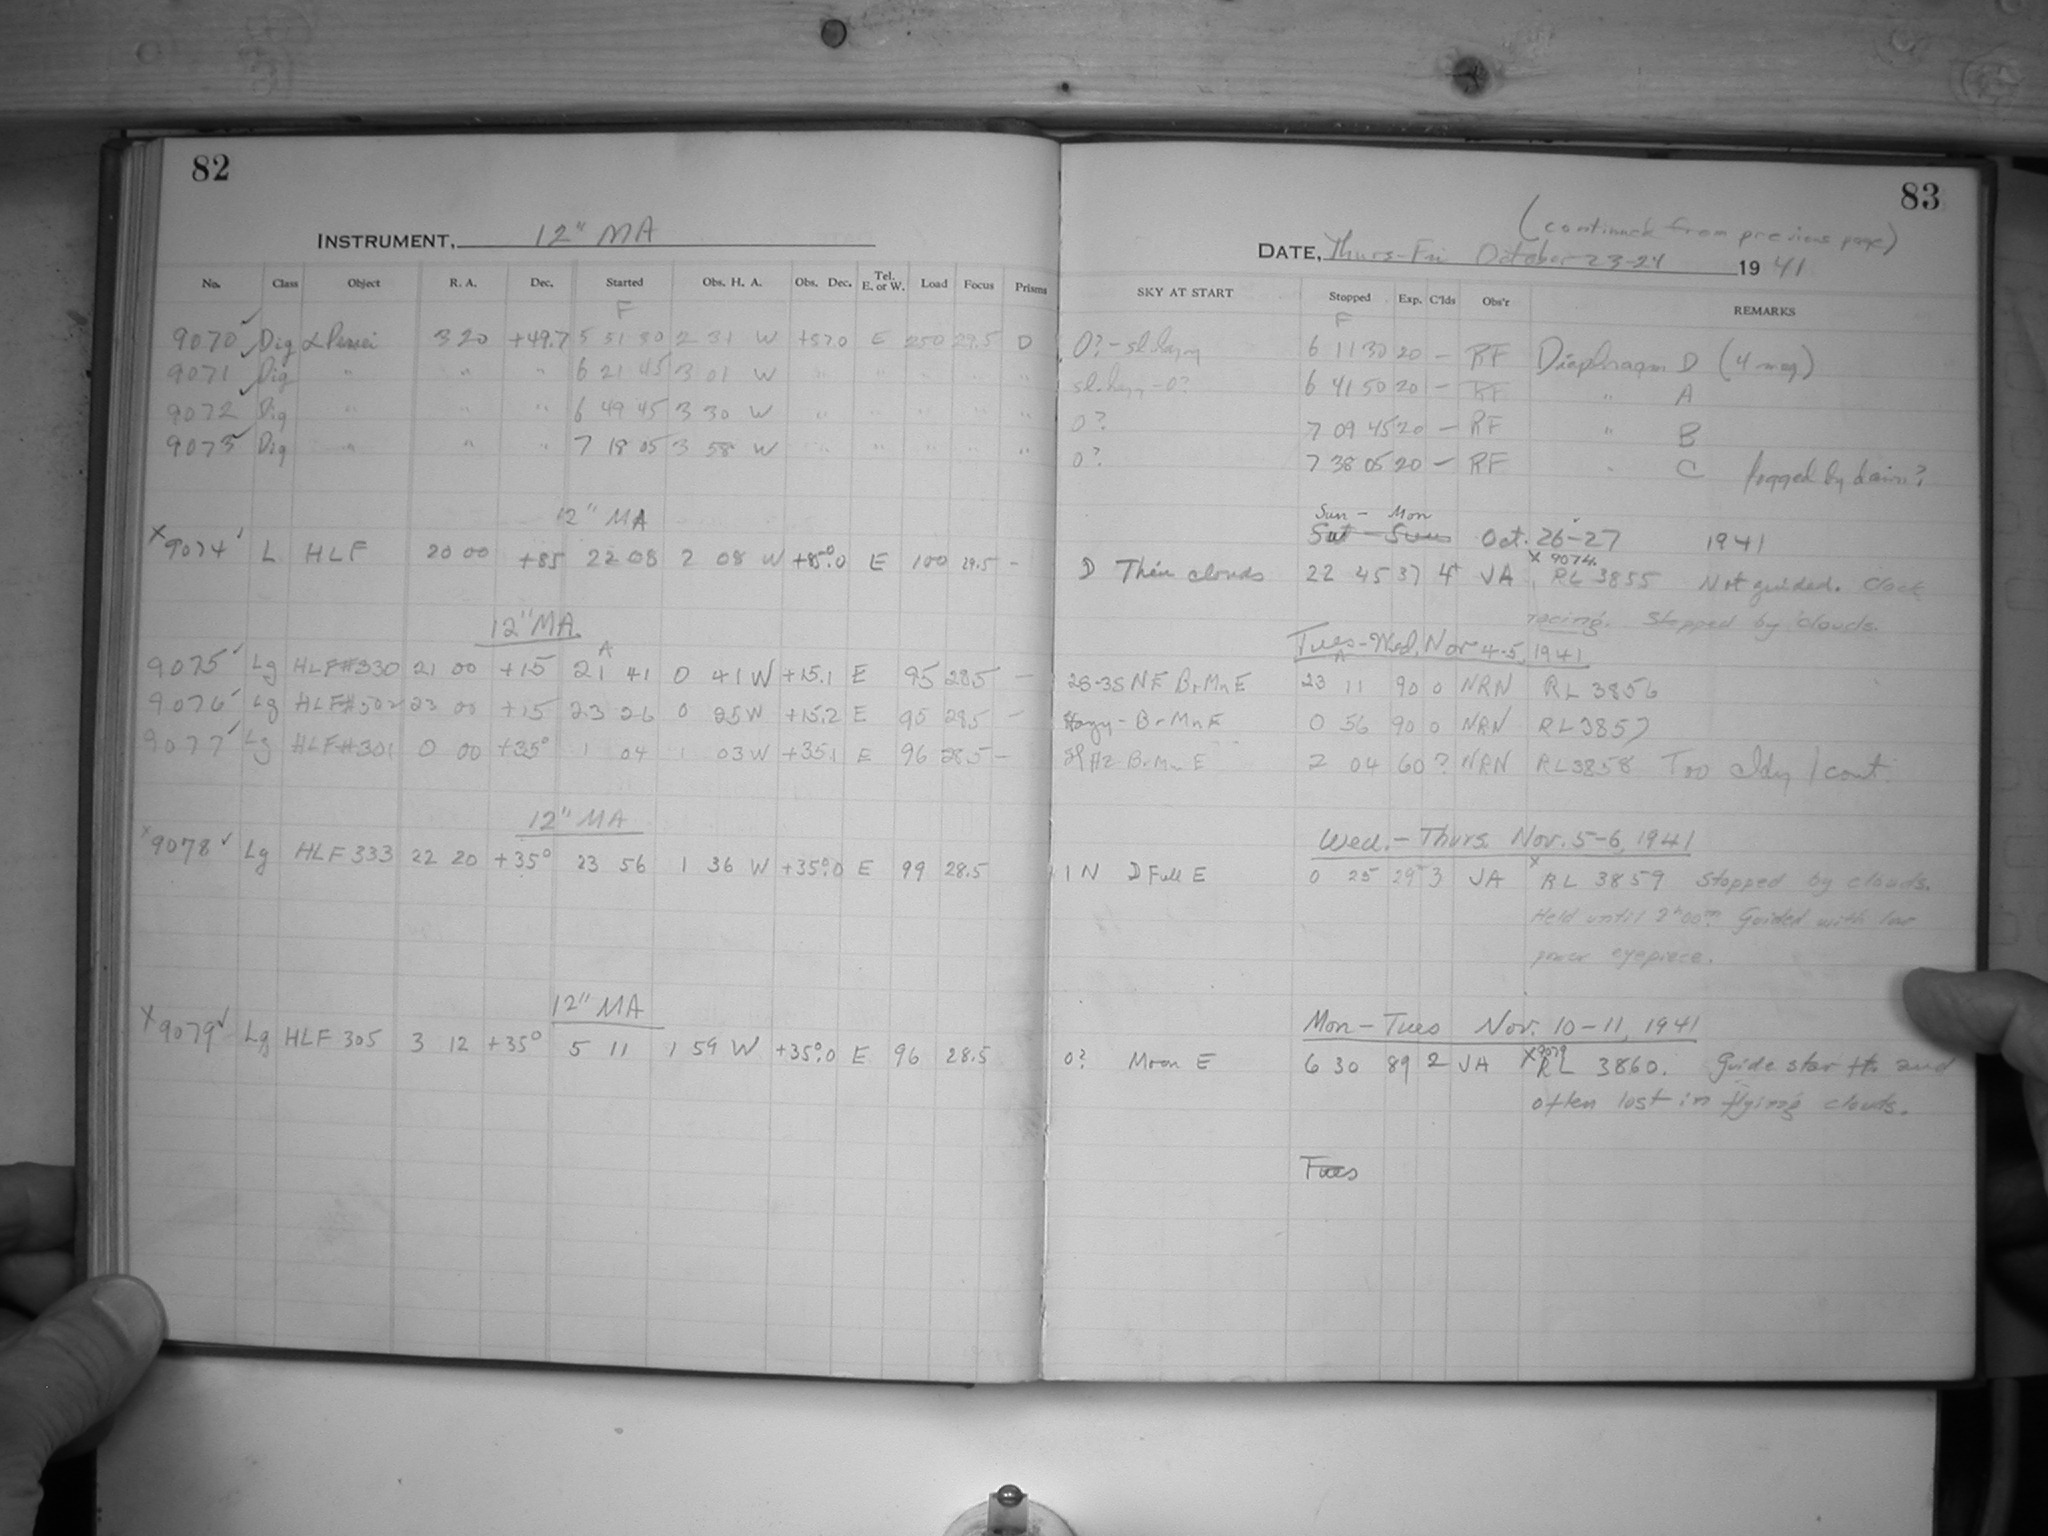 82
INSTRUMENT, 12" MA
No. Class Object R. A. Dec. Started Obs. H. A. Obs. Dec. Tel. E. or W. Load Focus Prisms
F
9070 Dig α Persei 3 20 +49.7 5 51 30 2 31 W +57.0 E 250 29.5 D
9071 Dig " " " 6 21 45 3 01 W " " " " "
9072 Dig " " " 6 49 45 3 30 W " " " " "
9073 Dig " " " 7 18 05 3 58 W " " " " "
12" MA
x 9074 L HLF 20 00 +85 22 08 2 08 W +85°.0 E 100 29.5 -
12" MA
A
9075 Lg HLF#330 21 00 +15 21 41 0 41 W +15.1 E 95 28.5 -
9076 Lg HLF#502 23 00 +15 23 26 0 25 W +15.2 E 95 28.5 -
9077 Lg HLF#301 0 00 +35° 1 04 1 03 W +35.1 E 96 28.5 -
12" MA
x 9078 Lg HLF 333 22 20 +35° 23 56 1 36 W +35°.0 E 99 28.5
12" MA
x 9079 Lg HLF 305 3 12 +35° 5 11 1 59 W +35°.0 E 96 28.5
83
(continued from previous page)
DATE, Thurs-Fri October 23-24 1941
SKY AT START Stopped Exp. C'lds Obs'r REMARKS
F
0? - sl hazy 6 11 30 20 - RF Diaphragm D (4 mag)
sl. hazy - 0? 6 41 50 20 - RF " A
0? 7 09 45 20 - RF " B
0? 7 38 05 20 - RF " C fogged by dawn?
Sun - Mon
Sat - Sun Oct. 26-27 1941
x 9074
D Thin clouds 22 45 37 4+ JA RL 3855 Not guided. Clock
racing. Stopped by clouds.
Tues-Wed, Nov 4-5, 1941
A
2S-3S NF Br Mn E 23 11 90 0 NRN RL 3856
Hazy - Br Mn E 0 56 90 0 NRN RL 3857
Sl Hz Br Mn E 2 04 60 ? NRN RL 3858 Too cldy / cont
Wed. - Thurs. Nov. 5-6, 1941
x
1 N D Full E 0 25 29 3 JA RL 3859 Stopped by clouds.
Held until 2h00m. Guided with low
power eyepiece.
Mon - Tues Nov. 10-11, 1941
x 9079
0? Moon E 6 30 89 2 JA RL 3860. Guide star ft. and
often lost in flying clouds.
Tues